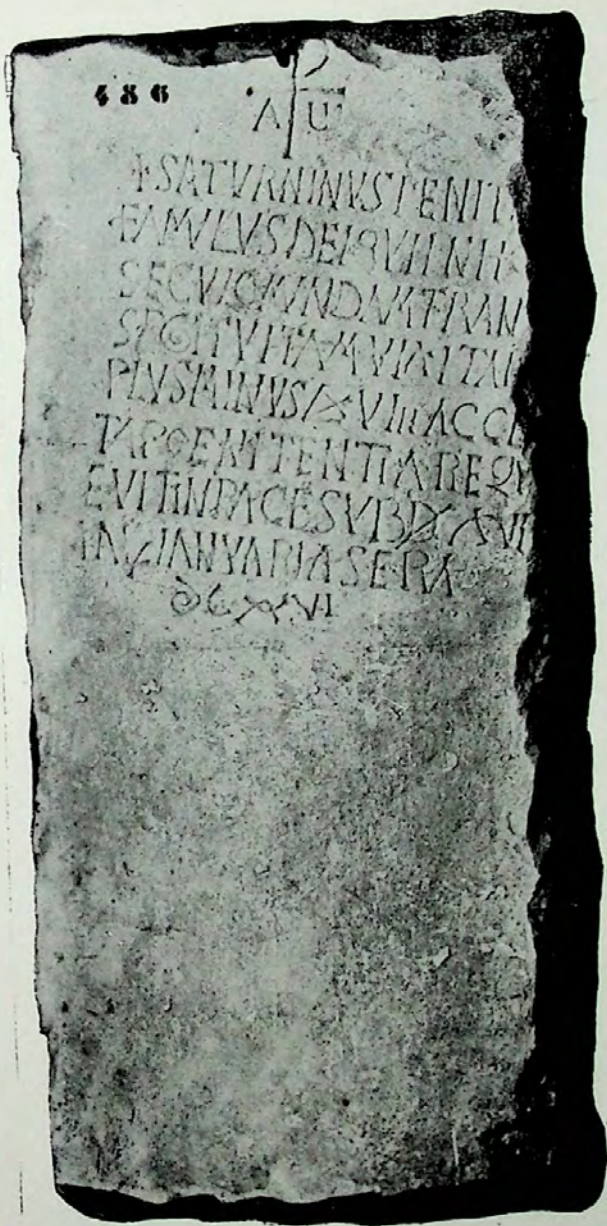 486
A U
+ SATVRNINVS PENIT
FAMVLVS DEI QVI IN H
SECVLO MVNDAM TRAN
SEGIT VITAM VIXIT AN
PLVS MINVS LXVIII ACCE
TA POENITENTIA REQV
EVIT IN PACE SVB D XVI
IANVARIAS ERA
DCXXVI